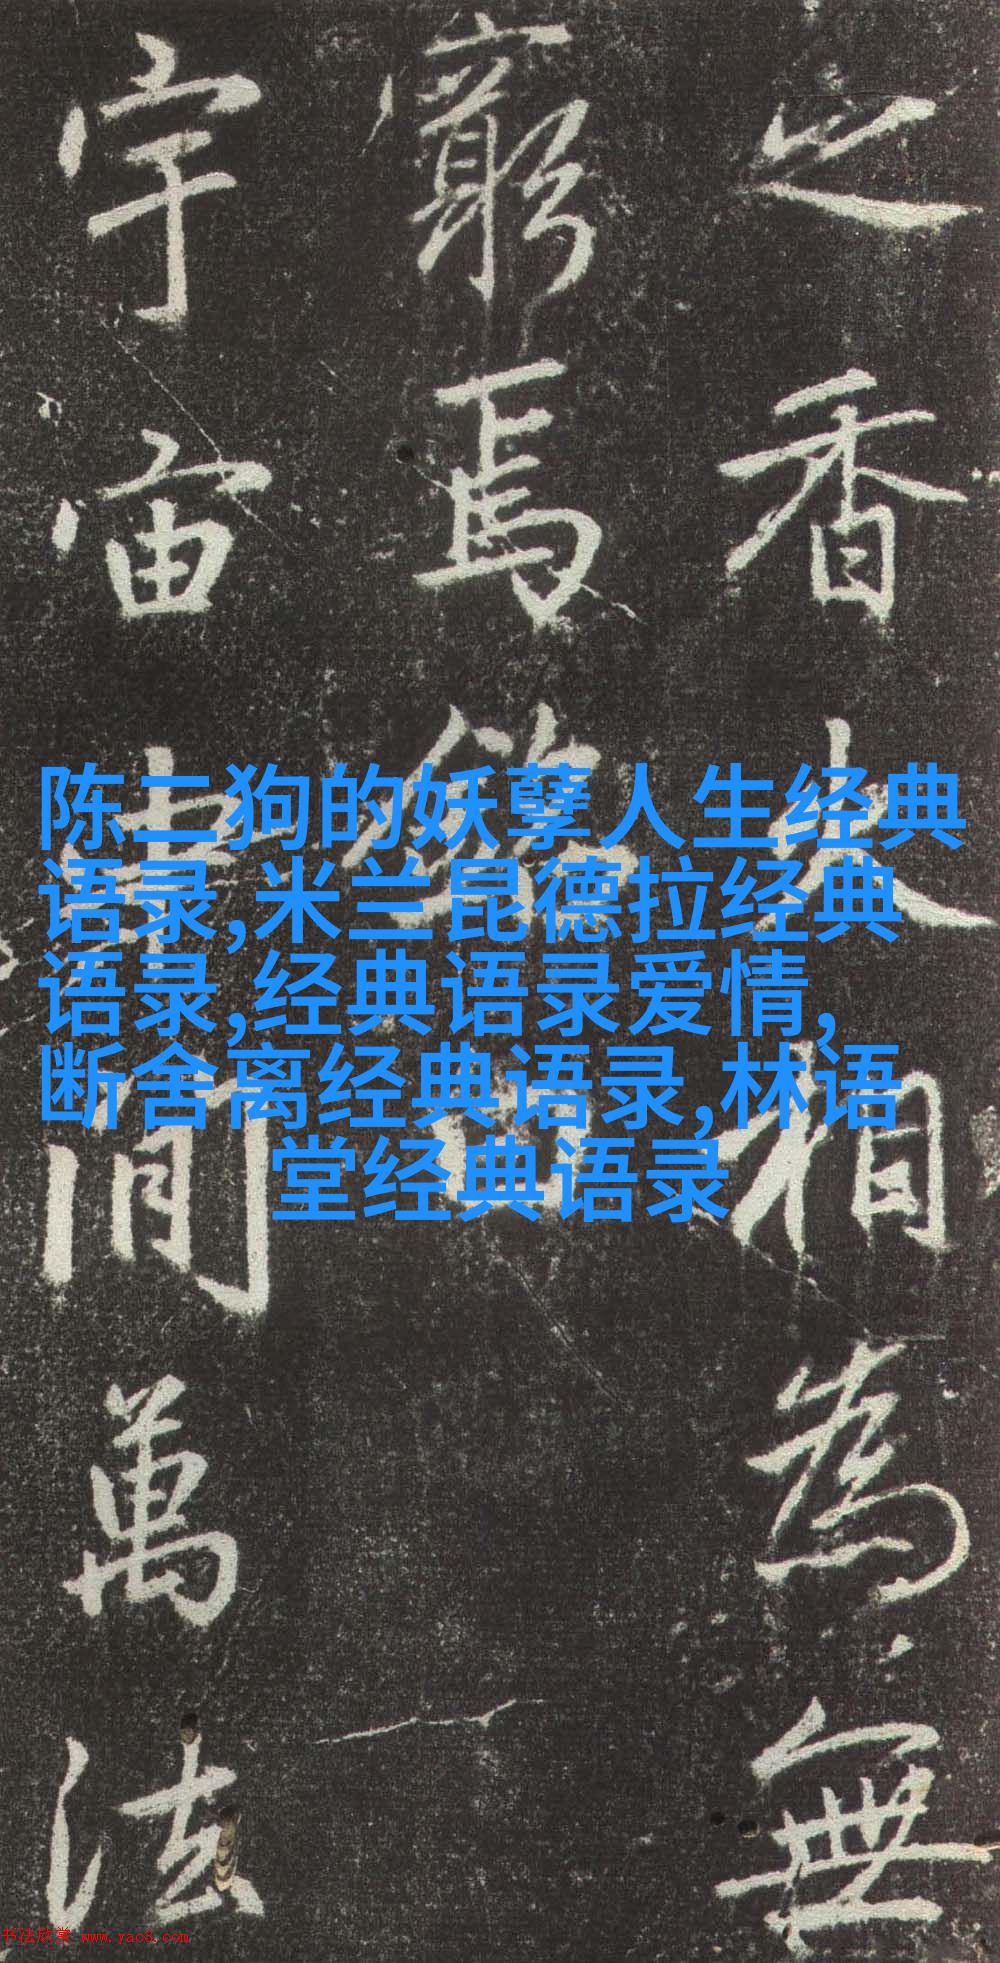 之香火相為無
窮焉
宇宙間萬法
陈二狗的妖孽人生经典
语录,米兰昆德拉经典
语录,经典语录爱情,
断舍离经典语录,林语
堂经典语录
书法欣赏 www.yac8.com